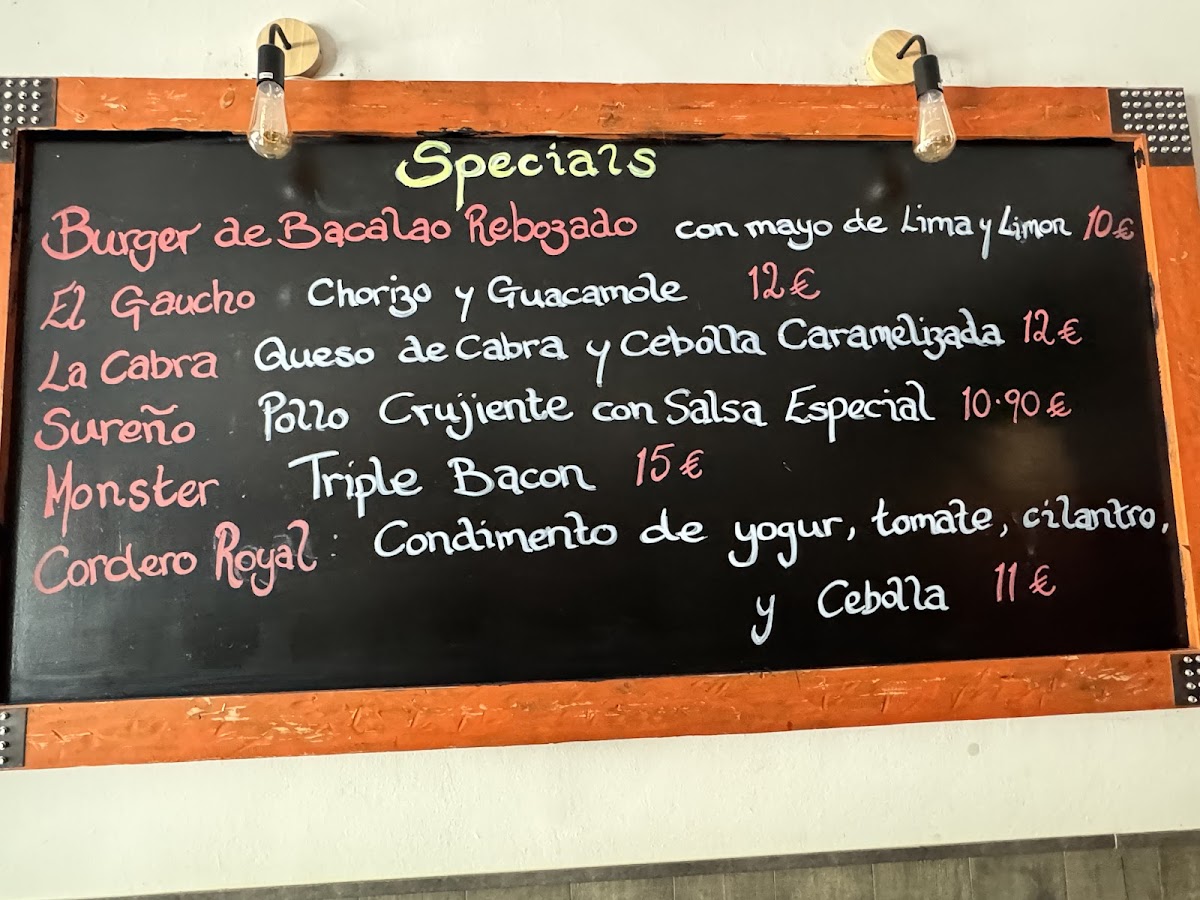 Specials
Burger de Bacalao Rebozado con mayo de Lima y Limon 10€
El Gaucho Chorizo y Guacamole 12€
La Cabra Queso de Cabra y Cebolla Caramelizada 12€
Sureño Pollo Crujiente con Salsa Especial 10.90€
Monster Triple Bacon 15€
Cordero Royal: Condimento de yogur, tomate, cilantro,
y Cebolla 11€